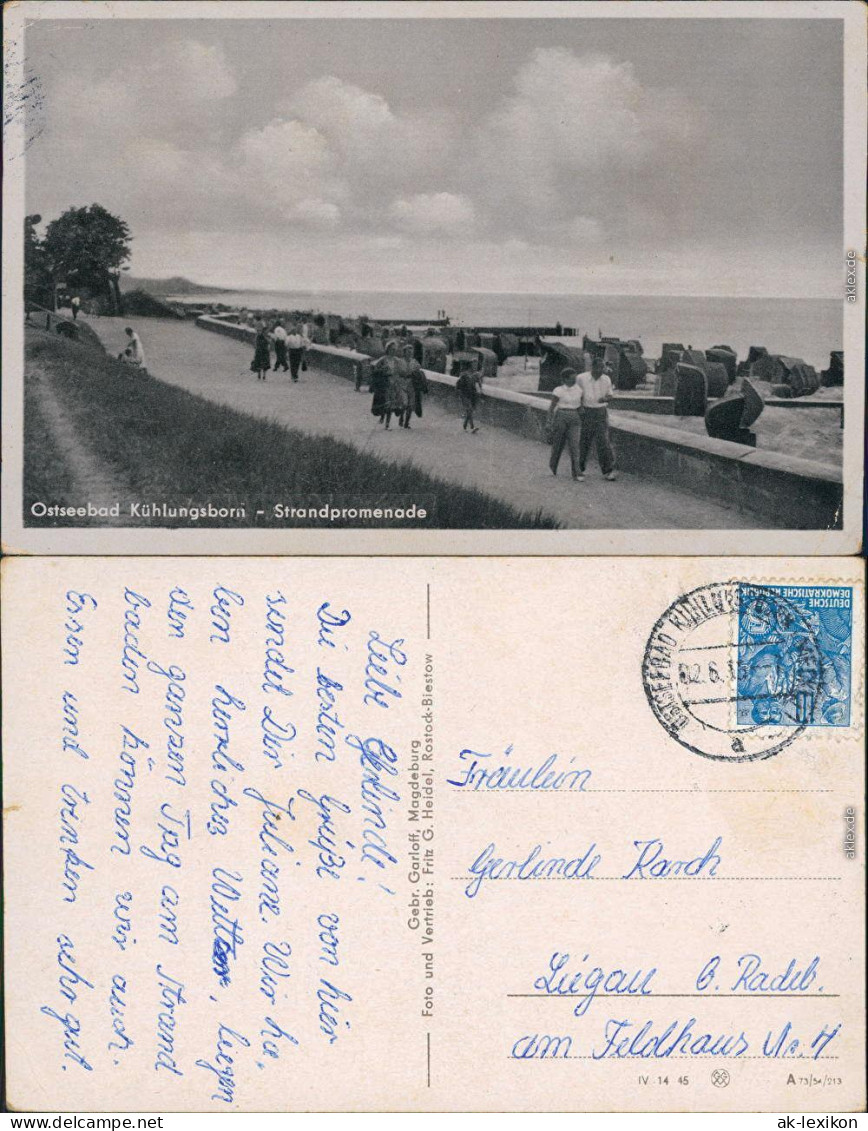 Ostseebad Kühlungsborn - Strandpromenade
Liebe Gerlinde!
Die besten Grüße von hier
sendet Dir Juliane. Wir ha,
ben herrliches Wetter, liegen
den ganzen Tag am Strand
baden können wir auch.
Essen und trinken sehr gut.
Gebr. Garloff, Magdeburg
Foto und Vertrieb: Fritz G. Heidel, Rostock-Biestow
DEUTSCHE
DEMOKRATISCHE REPUBLIK
10
OSTSEEBAD KÜHLUNGSBORN
02.6.
a
Fräulein
Gerlinde Karch
Liegau b. Radeb.
am Feldhaus Nr. 7
IV 14 45
A 73/54/213
aklex.de
aklex.de
aklex.de
ak-lexikon